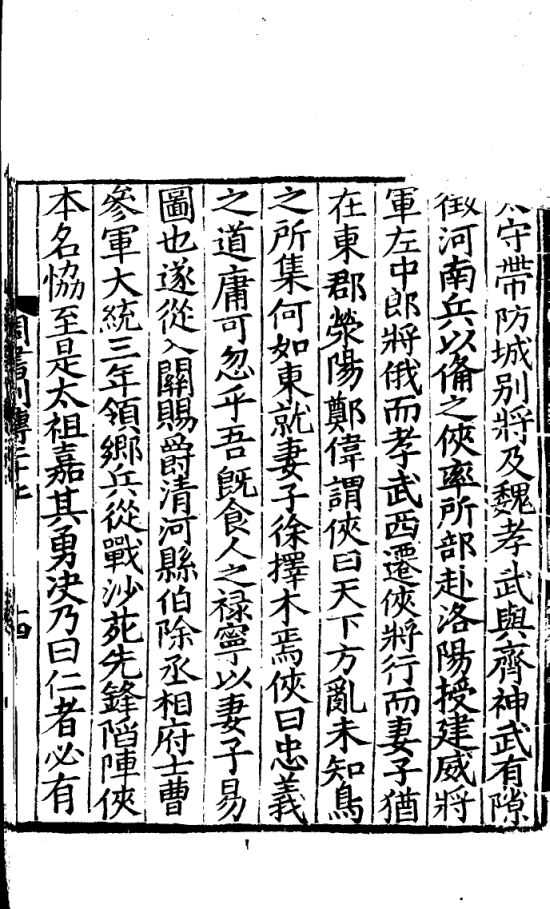 守帶防城別將及魏孝武與齊神武有隙
徵河南兵以俻之俠率所部赴洛陽授建威將
軍左中郎將俄而孝武西遷俠將行而妻子猶
在東郡滎陽鄭偉謂俠曰天下方亂未知鳥
之所集何如東就妻子徐擇木焉俠曰忠義
之道庸可忽乎吾旣食人之禄寧以妻子易
圖也遂從入關賜爵清河縣伯除丞相府士曹
參軍大統三年領鄉兵從戰沙苑先鋒陷陣俠
本名恊至是太祖嘉其勇决乃曰仁者必有
周書列傳二十七
四